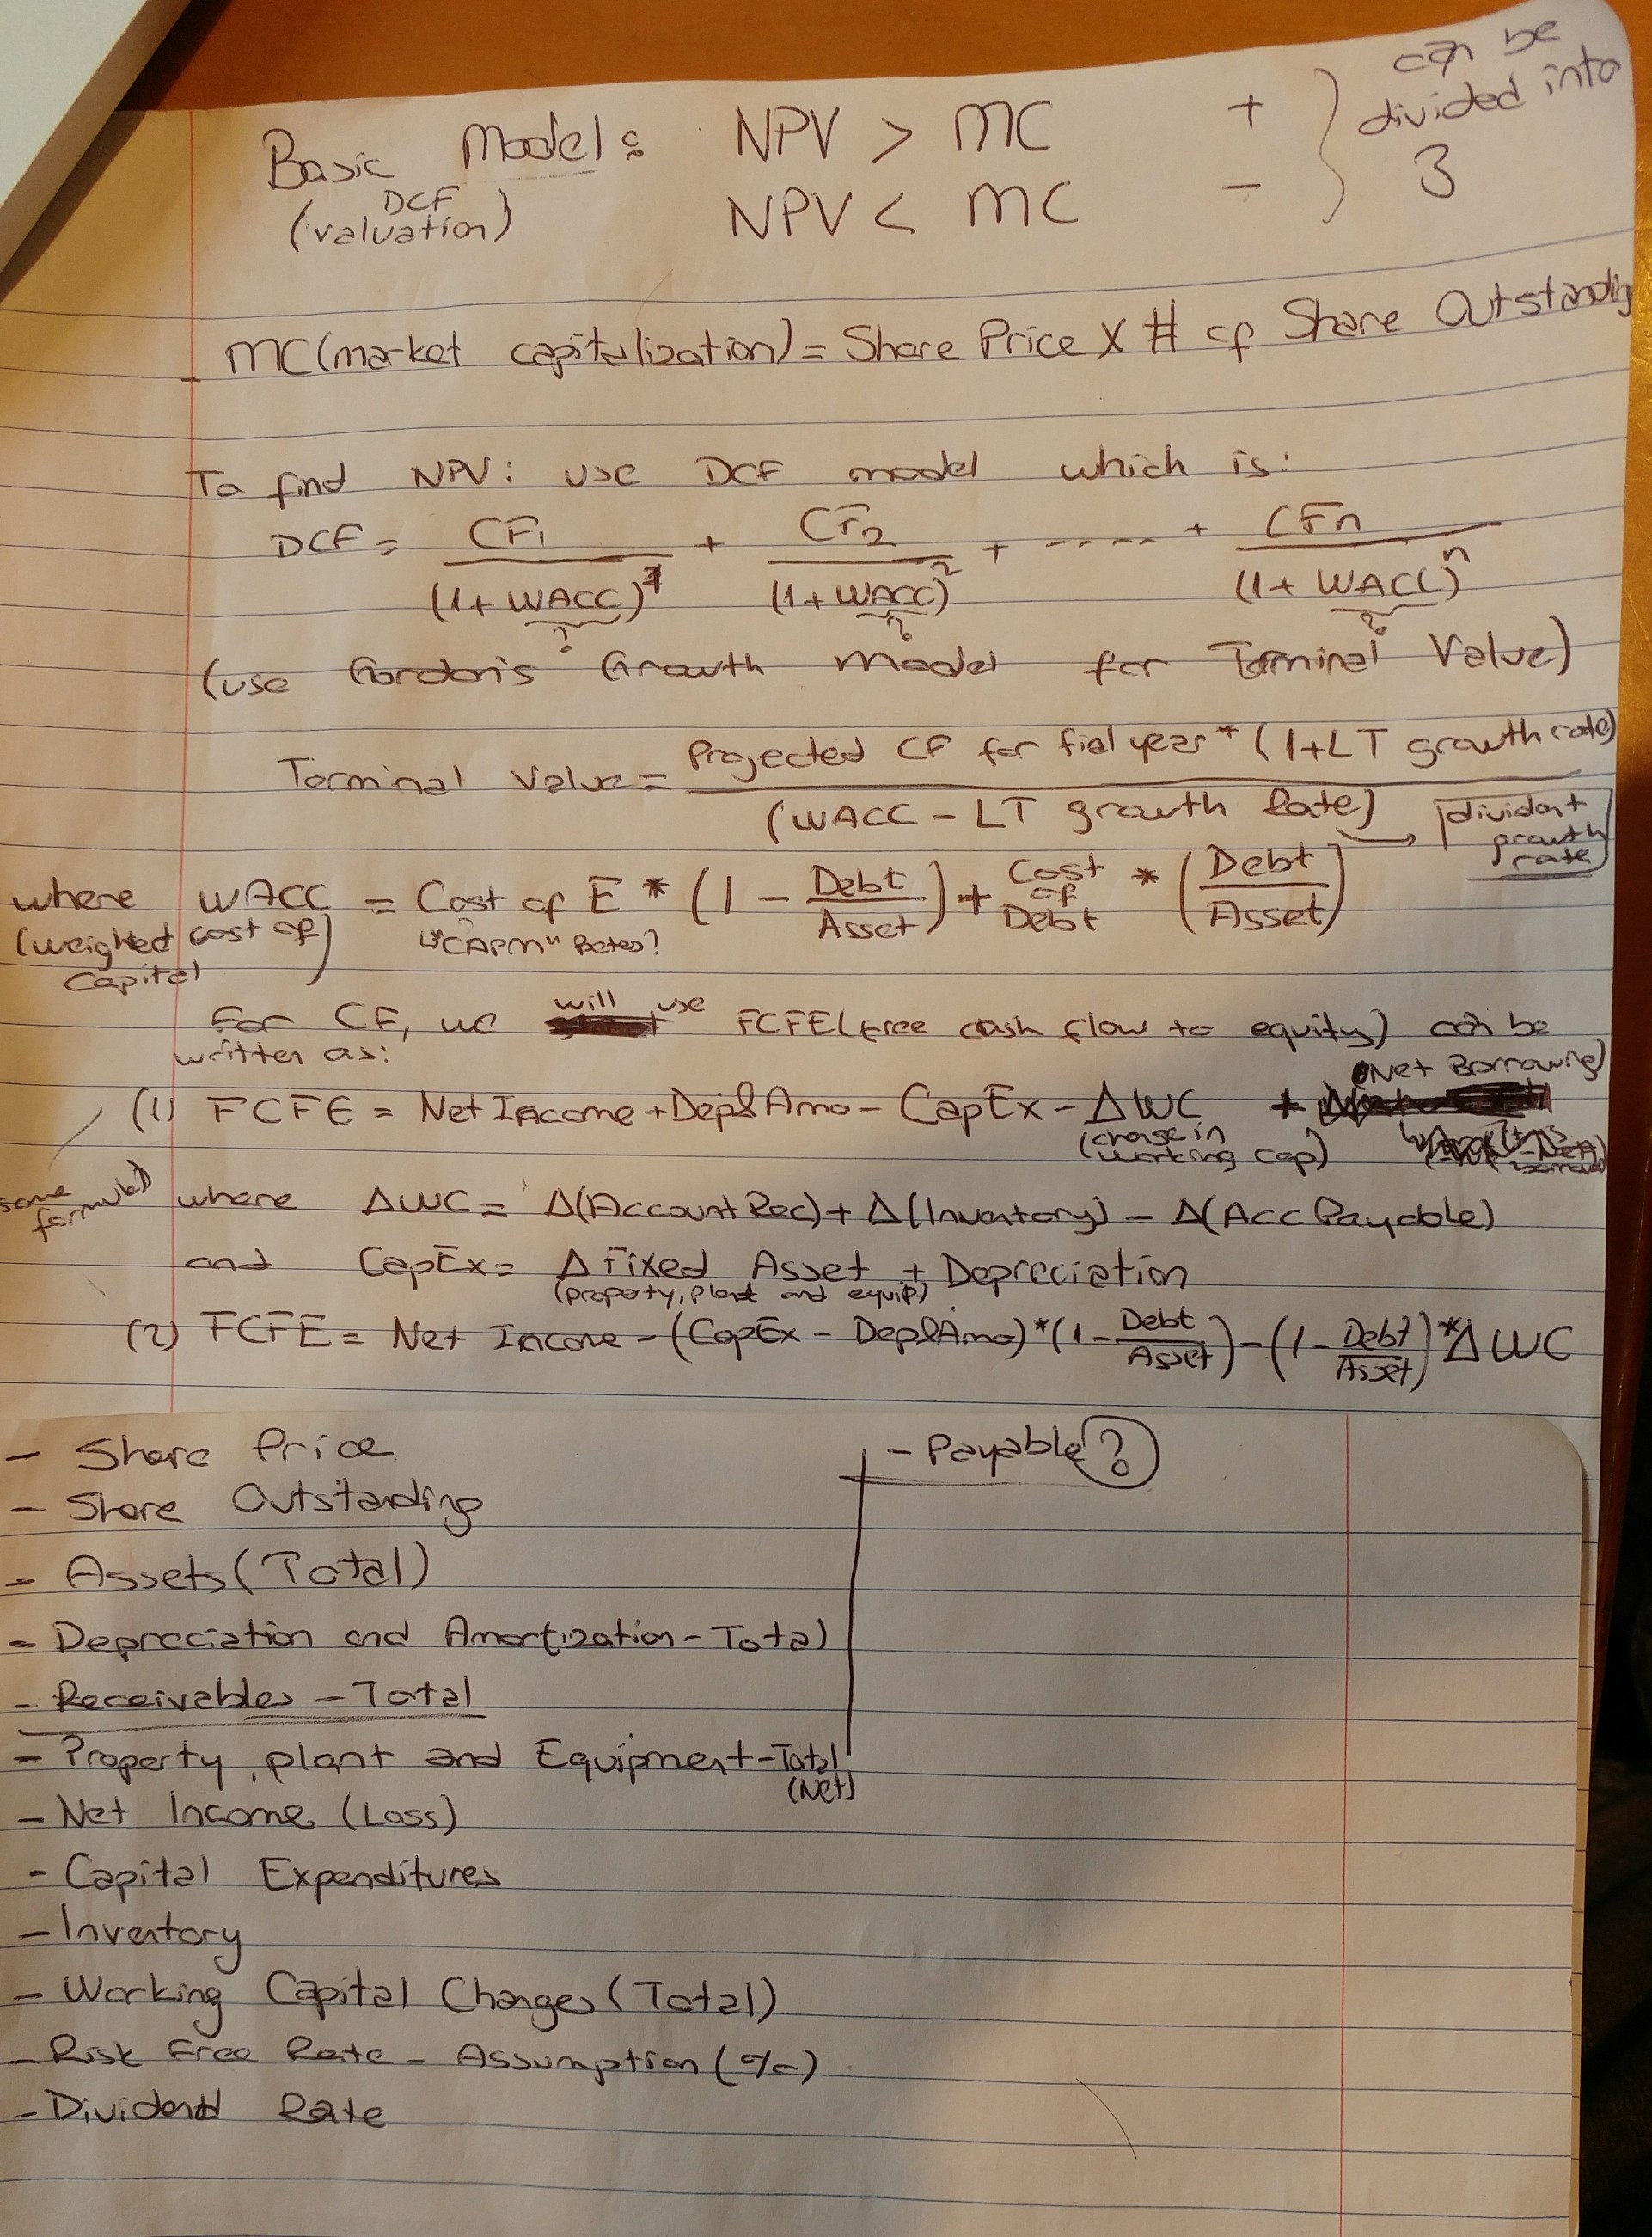 Basic Model: NPV > MC +
DCF
(valuation) NPV < MC -
} can be
divided into
3
MC(market capitalization) = Share Price X # of Share Outstanding
To find NPV: use DCF model which is:
DCF = CF1 / (1+WACC)^1 + CF2 / (1+WACC)^2 + ----- + CFn / (1+WACC)^n
? ? ?
(use Gordon's Growth Model for Terminal Value)
Terminal Value = Projected CF for fial year * (1+LT growth rate) / (WACC - LT growth Rate)
→ divident
growth
rate
where WACC = Cost of E * (1 - Debt/Asset) + Cost of Debt * (Debt/Asset)
(weighted cost of
Capital) ↳"CAPM" Betas?
For CF, we will use FCFE (free cash flow to equity) can be
written as:
(1) FCFE = Net Income + Dep&Amo - CapEx - ΔWC + (Net Borrowing)
(change in
working cap)
same
formula)
where ΔWC = Δ(Account Rec) + Δ(Inventory) - Δ(Acc Payable)
and CapEx = Δ Fixed Asset + Depreciation
(property, plant and equip.)
(2) FCFE = Net Income - (CapEx - Dep&Amo) * (1 - Debt/Asset) - (1 - Debt/Asset) * ΔWC
- Share Price
- Share Outstanding
- Assets (Total)
- Depreciation and Amortization - Total
- Receivables - Total
- Property, plant and Equipment - Total
(Net)
- Net Income (Loss)
- Capital Expenditures
- Inventory
- Working Capital Changes (Total)
- Risk Free Rate - Assumption (%)
- Dividend Rate
- Payable ?